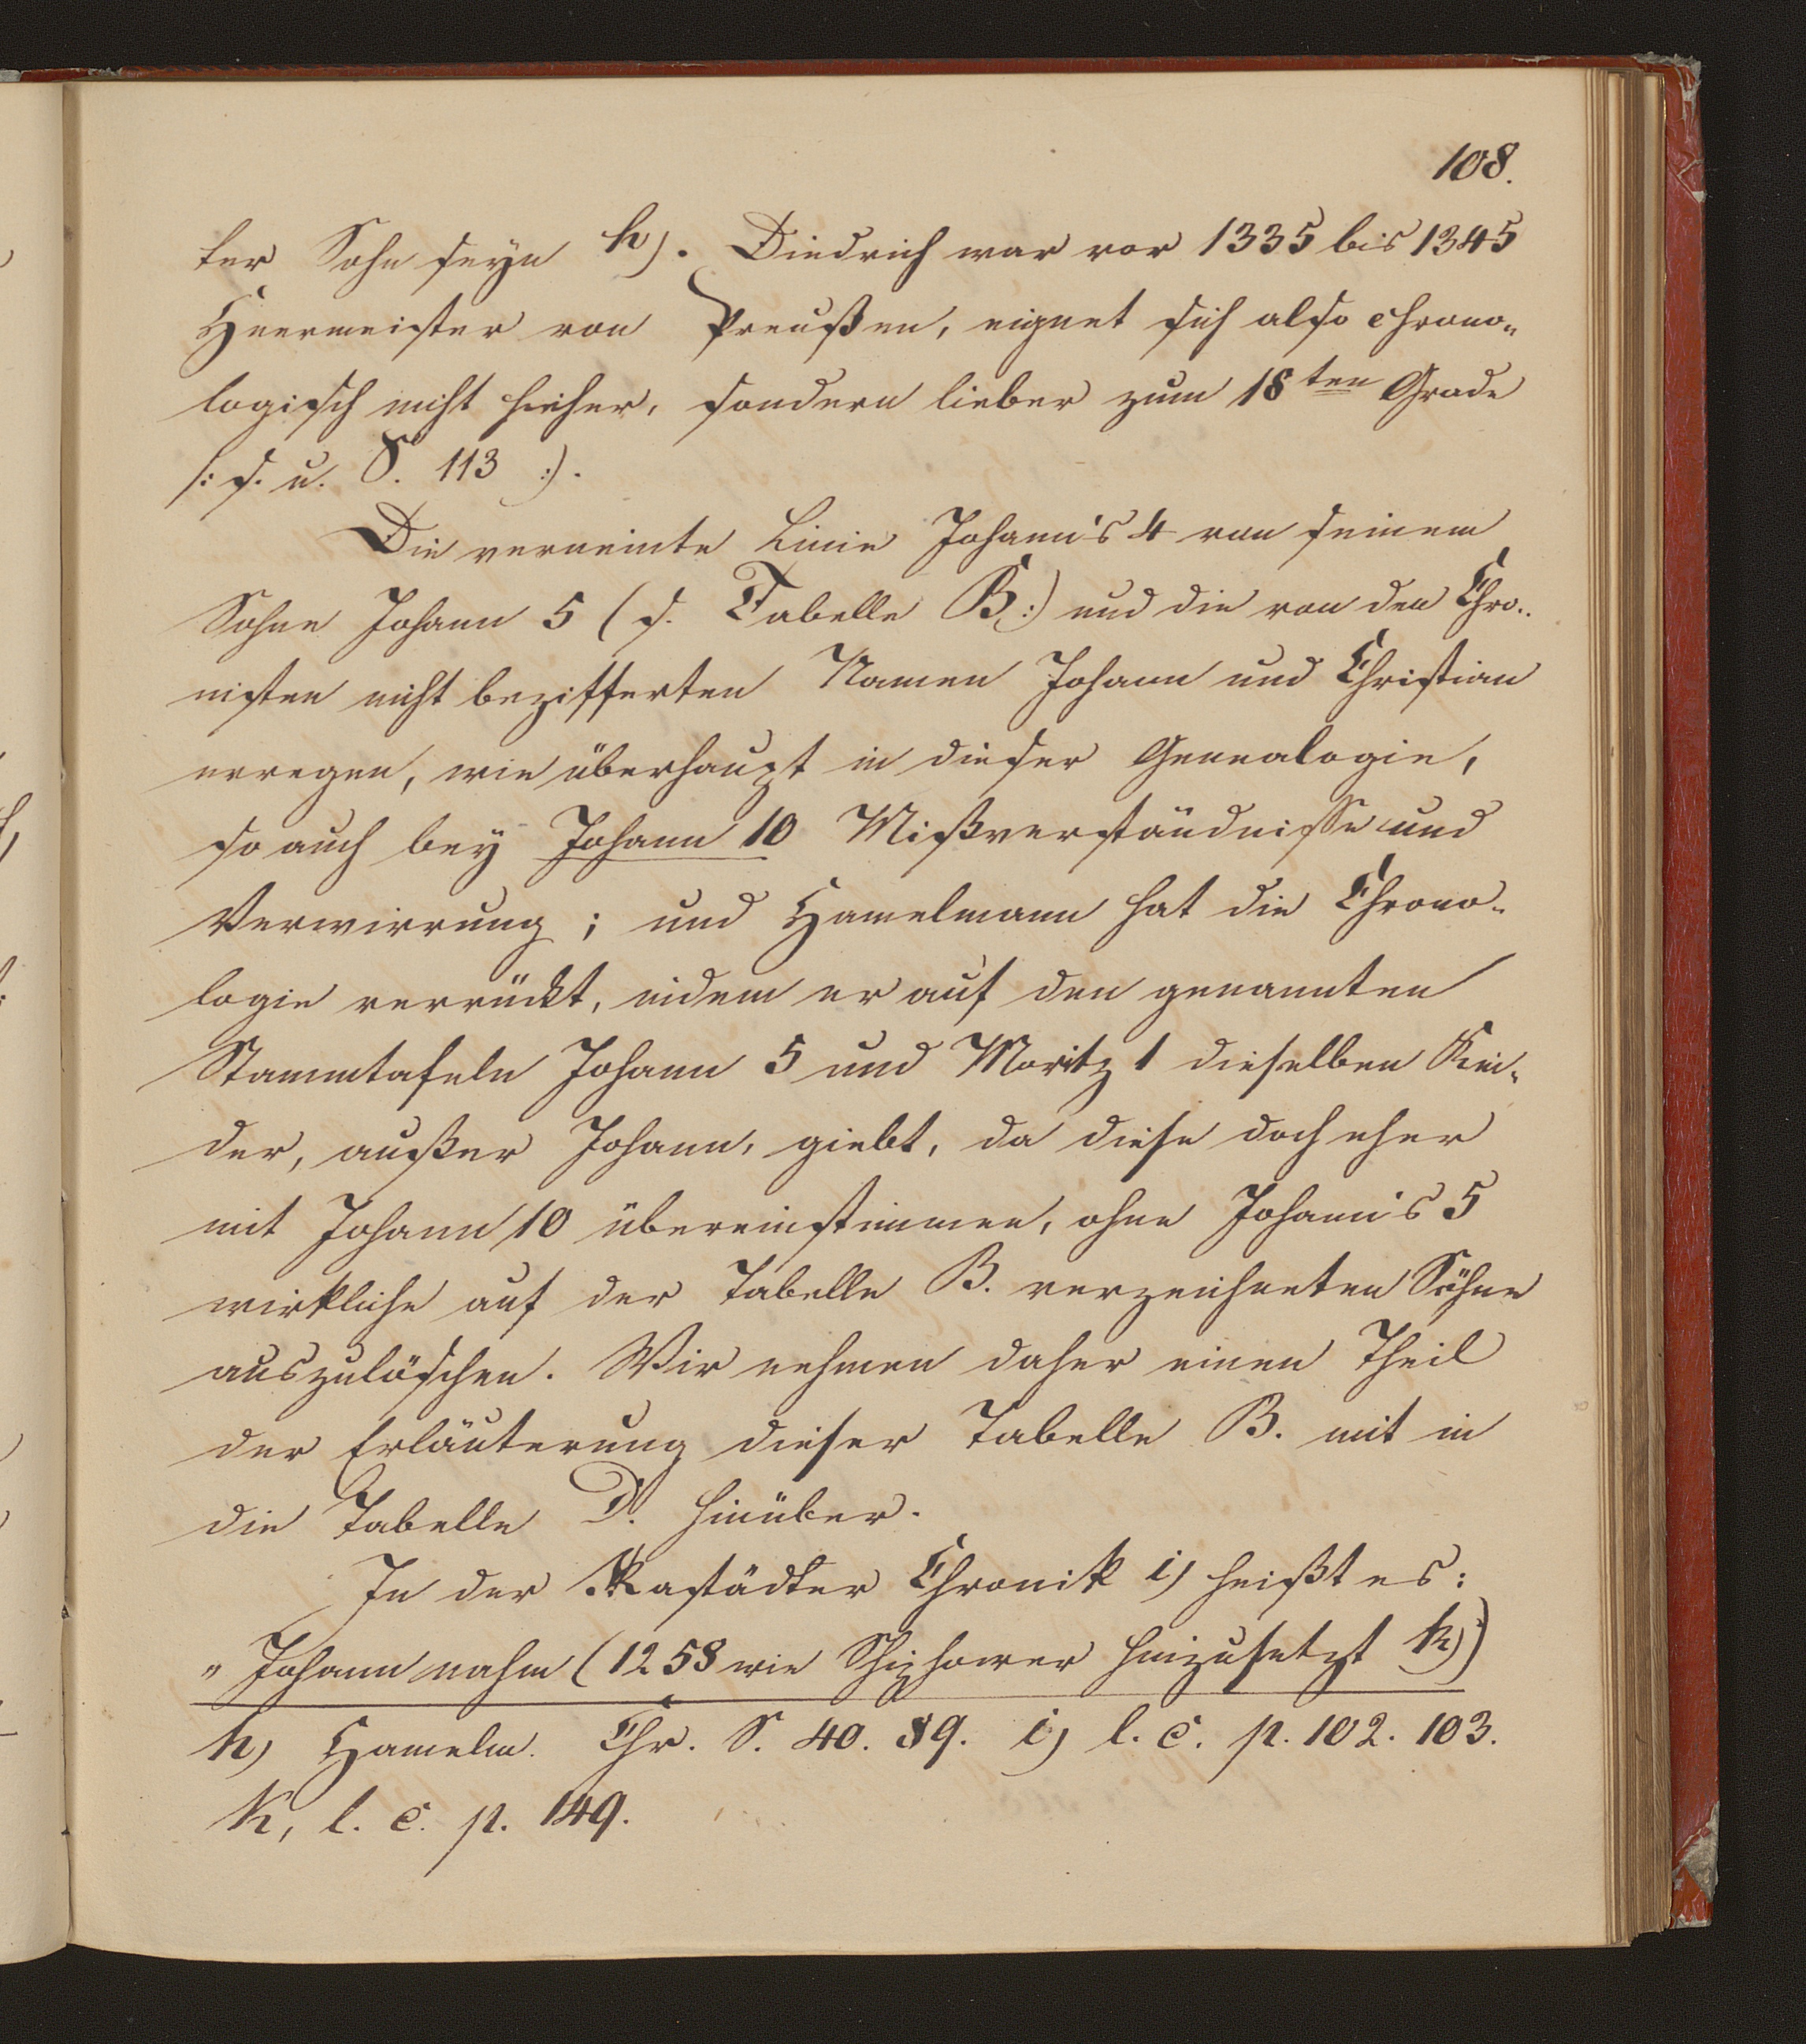 108.
ter Sohn seyn h). Diedrich war vor 1335 bis 1345
Heermeister von Preußen, eignet sich also chrono-
logisch nicht hieher, sondern lieber zum 18ten Grade
/: s. u. S. 113 :/.
Die vereinte Linie Johann's 4 von seinem
Sohne Johann 5 (s. Tabelle B:) und die von den Chro-
nisten nicht bezifferten Namen Johann und Christian
erregen, wie überhaupt in dieser Genealogie,
so auch bey Johann 10 Mißverständnisse und
Verwirrung; und Hamelmann hat die Chrono-
logie verrückt, indem er auf den genannten
Stammtafeln Johann 5 und Moritz 1 dieselben Kin-
der, außer Johann, giebt, da diese doch eher
mit Johann 10 übereinstimmen, ohne Johann's 5
wirkliche auf der Tabelle B. verzeichneten Söhne
auszulöschen. Wir nehmen daher einen Theil
der Erläuterung dieser Tabelle B. mit in
die Tabelle D. hinüber.
In der Rastädter Chronik i) heißt es:
„Johann nahm (1258 wie Schiphower hinzusetzt k))
h) Hamelm. Chr. S. 40. 89. i) l. c. p. 102. 103.
k, l. c. p. 149.